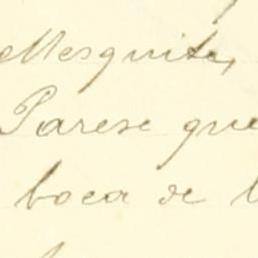 Mesquita,
Parese que
boca de